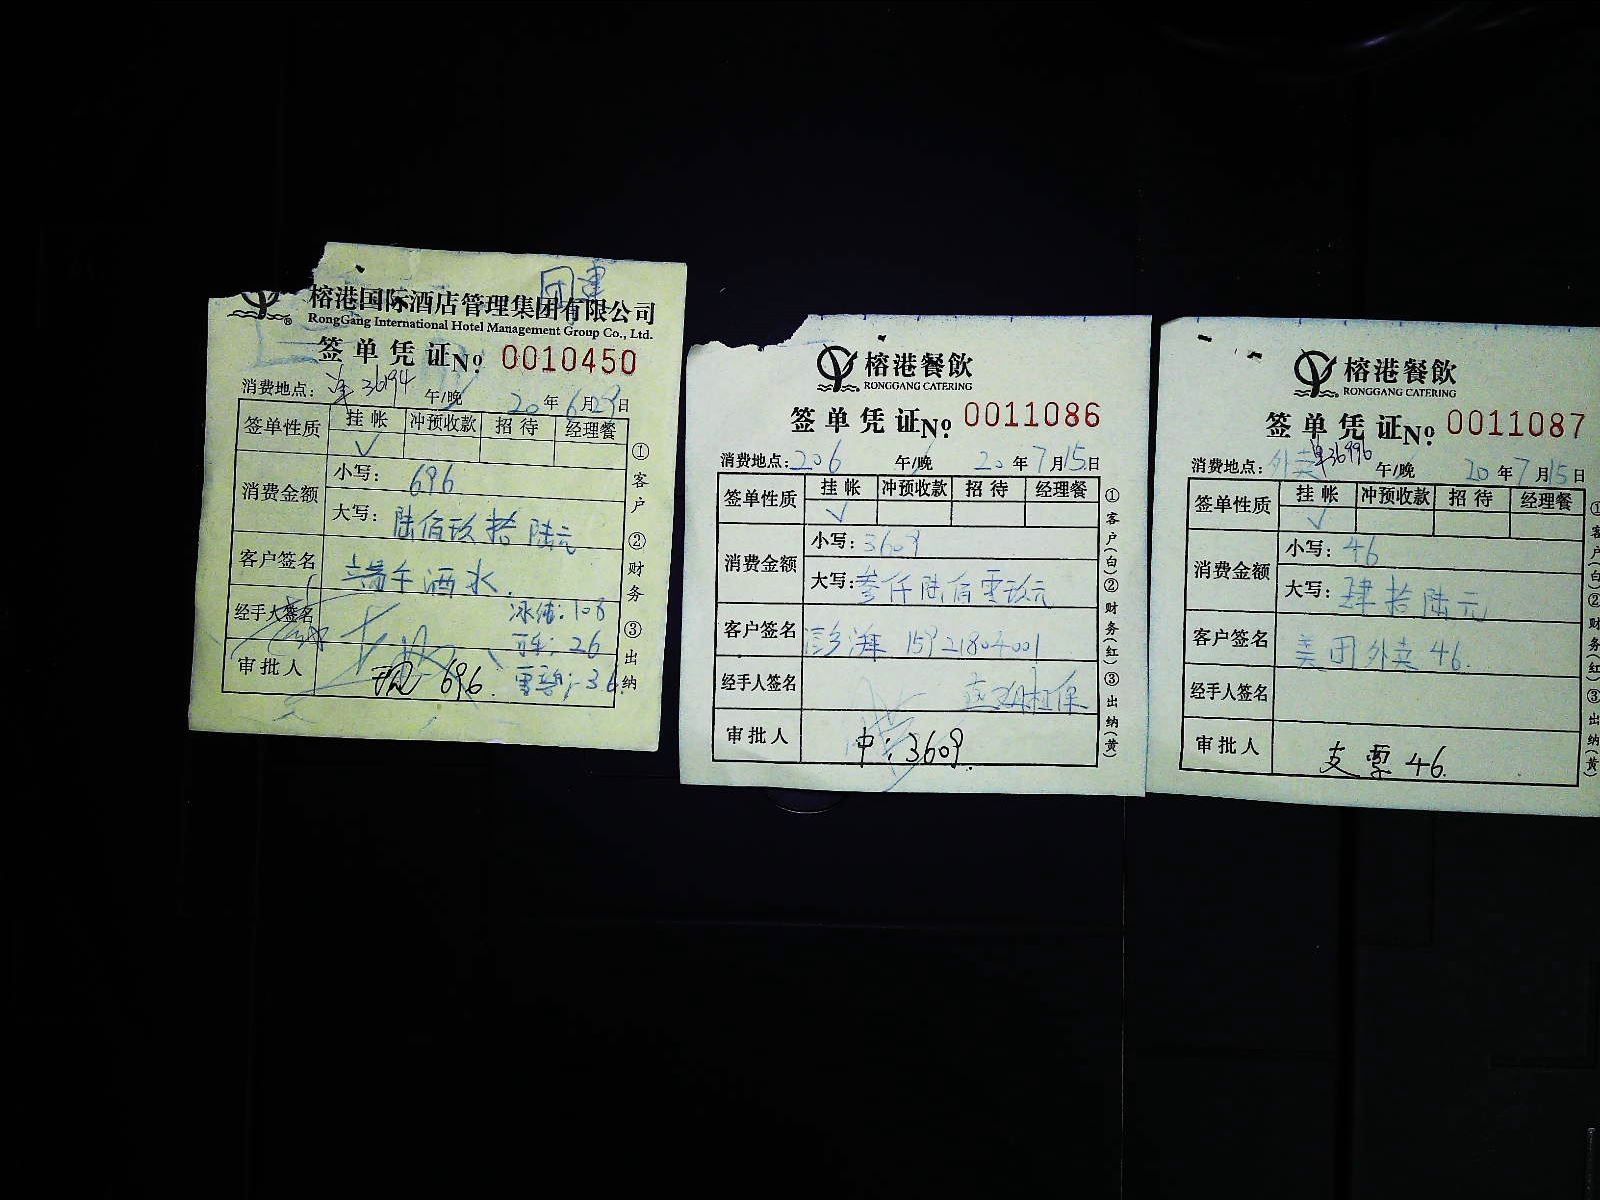 团建
榕港国际酒店管理集团有限公司
RongGang International Hotel Management Group Co., Ltd.
签单凭证№ 0010450
消费地点: 36194 午/晚 20年6月29日
签单性质 挂帐 冲预收款 招待 经理餐
√
消费金额 小写: 696
大写: 陆佰玖拾陆元
客户签名 端午酒水.
经手人签名 冰纯: 108
26
审批人 696. 雪碧: 36
①客户 ②财务 ③出纳
榕港餐飲
RONGGANG CATERING
签单凭证№ 0011086
消费地点: 206 午/晚 20年7月15日
签单性质 挂帐 冲预收款 招待 经理餐
√
消费金额 小写: 3609
大写: 叁仟陆佰零玖元
客户签名 15921804001
经手人签名 担保
审批人 中: 3609.
①客户(白)②财务(红)③出纳(黄)
榕港餐飲
RONGGANG CATERING
签单凭证№ 0011087
消费地点: 外卖 单36996 午/晚 20年7月15日
签单性质 挂帐 冲预收款 招待 经理餐
√
消费金额 小写: 46
大写: 肆拾陆元
客户签名 美团外卖 46.
经手人签名
审批人 支票 46.
①客户(白)②财务(红)③出纳(黄)